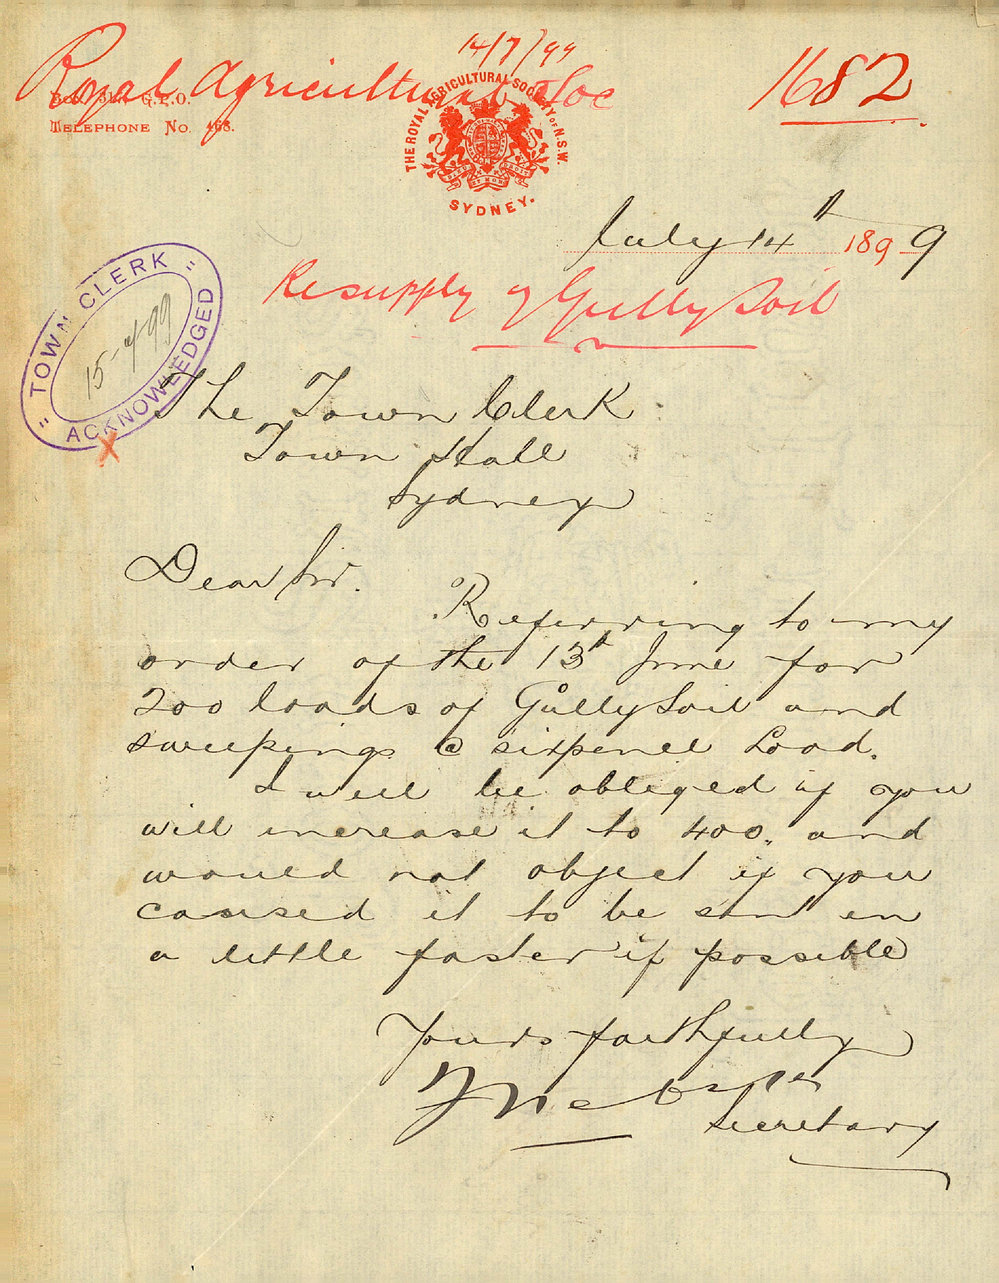 14/7/99
Royal Agricultural Soc
1682
G.P.O.
TELEPHONE No. 463.
THE ROYAL AGRICULTURAL SOCIETY OF N.S.W.
SYDNEY.
July 14th 1899
Re supply of Gully Soil
" TOWN CLERK "
15-7/99
ACKNOWLEDGED
X
The Town Clerk
Town Hall
Sydney
Dear Sir.
Referring to my
order of the 13th June for
200 loads of Gully Soil and
sweepings @ sixpence Load.
I will be obliged if you
will increase it to 400, and
would not object if you
caused it to be sent in
a little faster if possible
Yours faithfully
Secretary